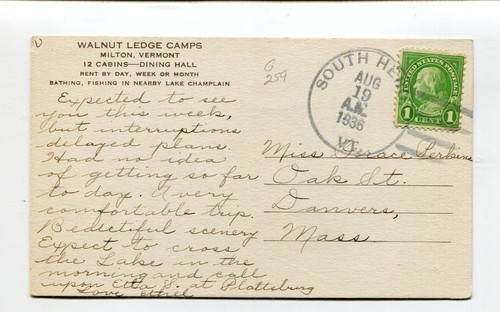 WALNUT LEDGE CAMPS
MILTON, VERMONT
12 CABINS—DINING HALL
RENT BY DAY, WEEK OR MONTH
BATHING, FISHING IN NEARBY LAKE CHAMPLAIN
Expected to see
you this week,
but interruptions
delayed plans.
Had no idea
of getting so far
to day. A very
comfortable trip.
Beautiful scenery
Expect to cross
the Lake in the
morning and call
upon Etta S. at Plattsburg
Love Ethel
G
259
SOUTH HE
AUG
19
A.M.
1936
VT.
UNITED STATES POSTAGE
1 CENT 1
Miss Grace Perkins
Oak St.
Danvers,
Mass